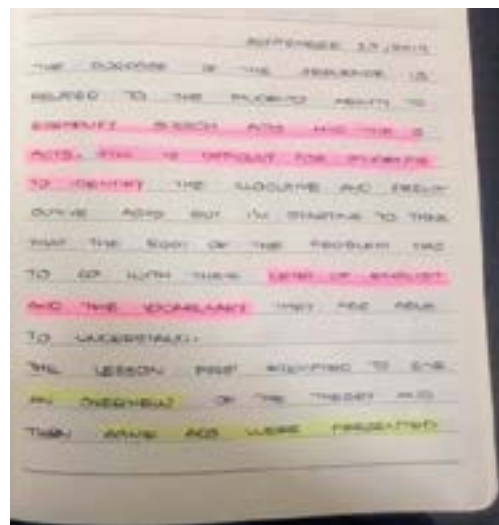 SEPTEMBER 27, 2019
THE PURPOSE OF THE SEQUENCE IS
RELATED TO THE STUDENTS ABILITY TO
IDENTIFY SPEECH ACTS AND THE 3
ACTS. IT IS DIFFICULT FOR STUDENTS
TO IDENTIFY THE AND
ACTS BUT I'M STARTING TO THINK
THAT THE ROOT OF THE PROBLEM HAS
TO DO WITH THEIR LEVEL OF ENGLISH
AND THE VOCABULARY THEY ARE ABLE
TO UNDERSTAND.
THE LESSON FIRST ATTEMPTED TO GIVE
AN OVERVIEW OF THE THEORY AND
THEN SOME ADS WERE PRESENTED